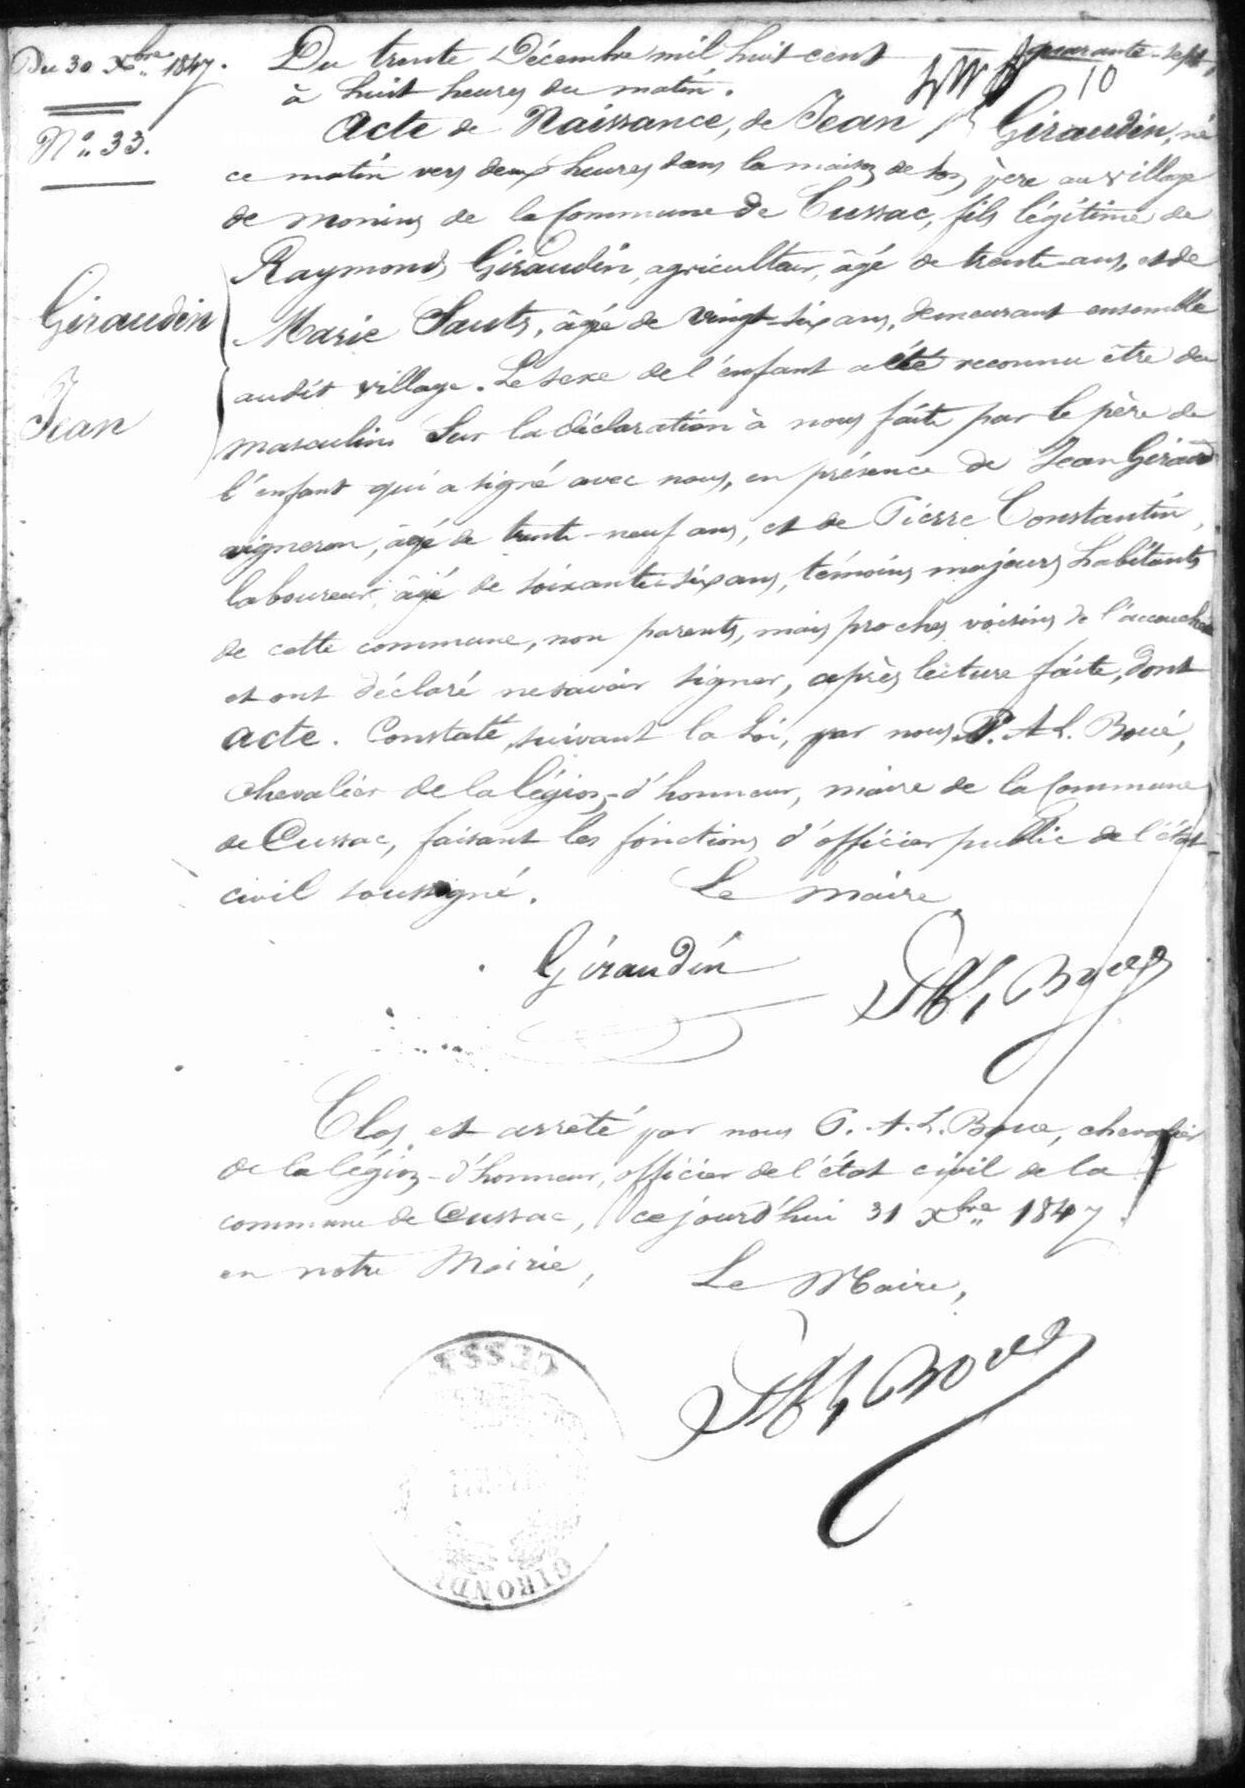 Du 30 Xbre 1847.
N° 33.
Giraudin
Jean
Du trente Décembre mil huit cent quarante-sept,
10
à huit heures du matin.
Acte de Naissance, de Jean Giraudin, né
ce matin vers deux heures dans la maison de son père au village
de Monins de la Commune de Cussac, fils légitime de
Raymond Giraudin, agriculteur, âgé de trente ans, et de
Marie Sauts, âgée de vingt-six ans, demeurant ensemble
audit village. Le sexe de l'enfant a été reconnu être du
masculin. Sur la déclaration à nous faite par le père de
l'enfant qui a signé avec nous, en présence de Jean Giraud
vigneron, âgé de trente-neuf ans, et de Pierre Constantin,
laboureur, âgé de soixante-six ans, témoins majeurs habitants
de cette commune, non parents, mais proches voisins de l'accouchée
et ont déclaré ne savoir signer, après lecture faite, dont
acte. Constaté, suivant la Loi, par nous P. A. L. Boué,
chevalier de la légion-d'honneur, maire de la Commune
de Cussac, faisant les fonctions d'officier public de l'état-
civil soussigné. Le maire
Giraudin
Boué
Clos et arrêté par nous P. A. L. Boue, chevalier
de la légion-d'honneur, officier de l'état civil de la
commune de Cussac, ce jourd'hui 31 Xbre 1847.
en notre Mairie, Le Maire,
Boué
GIRONDE